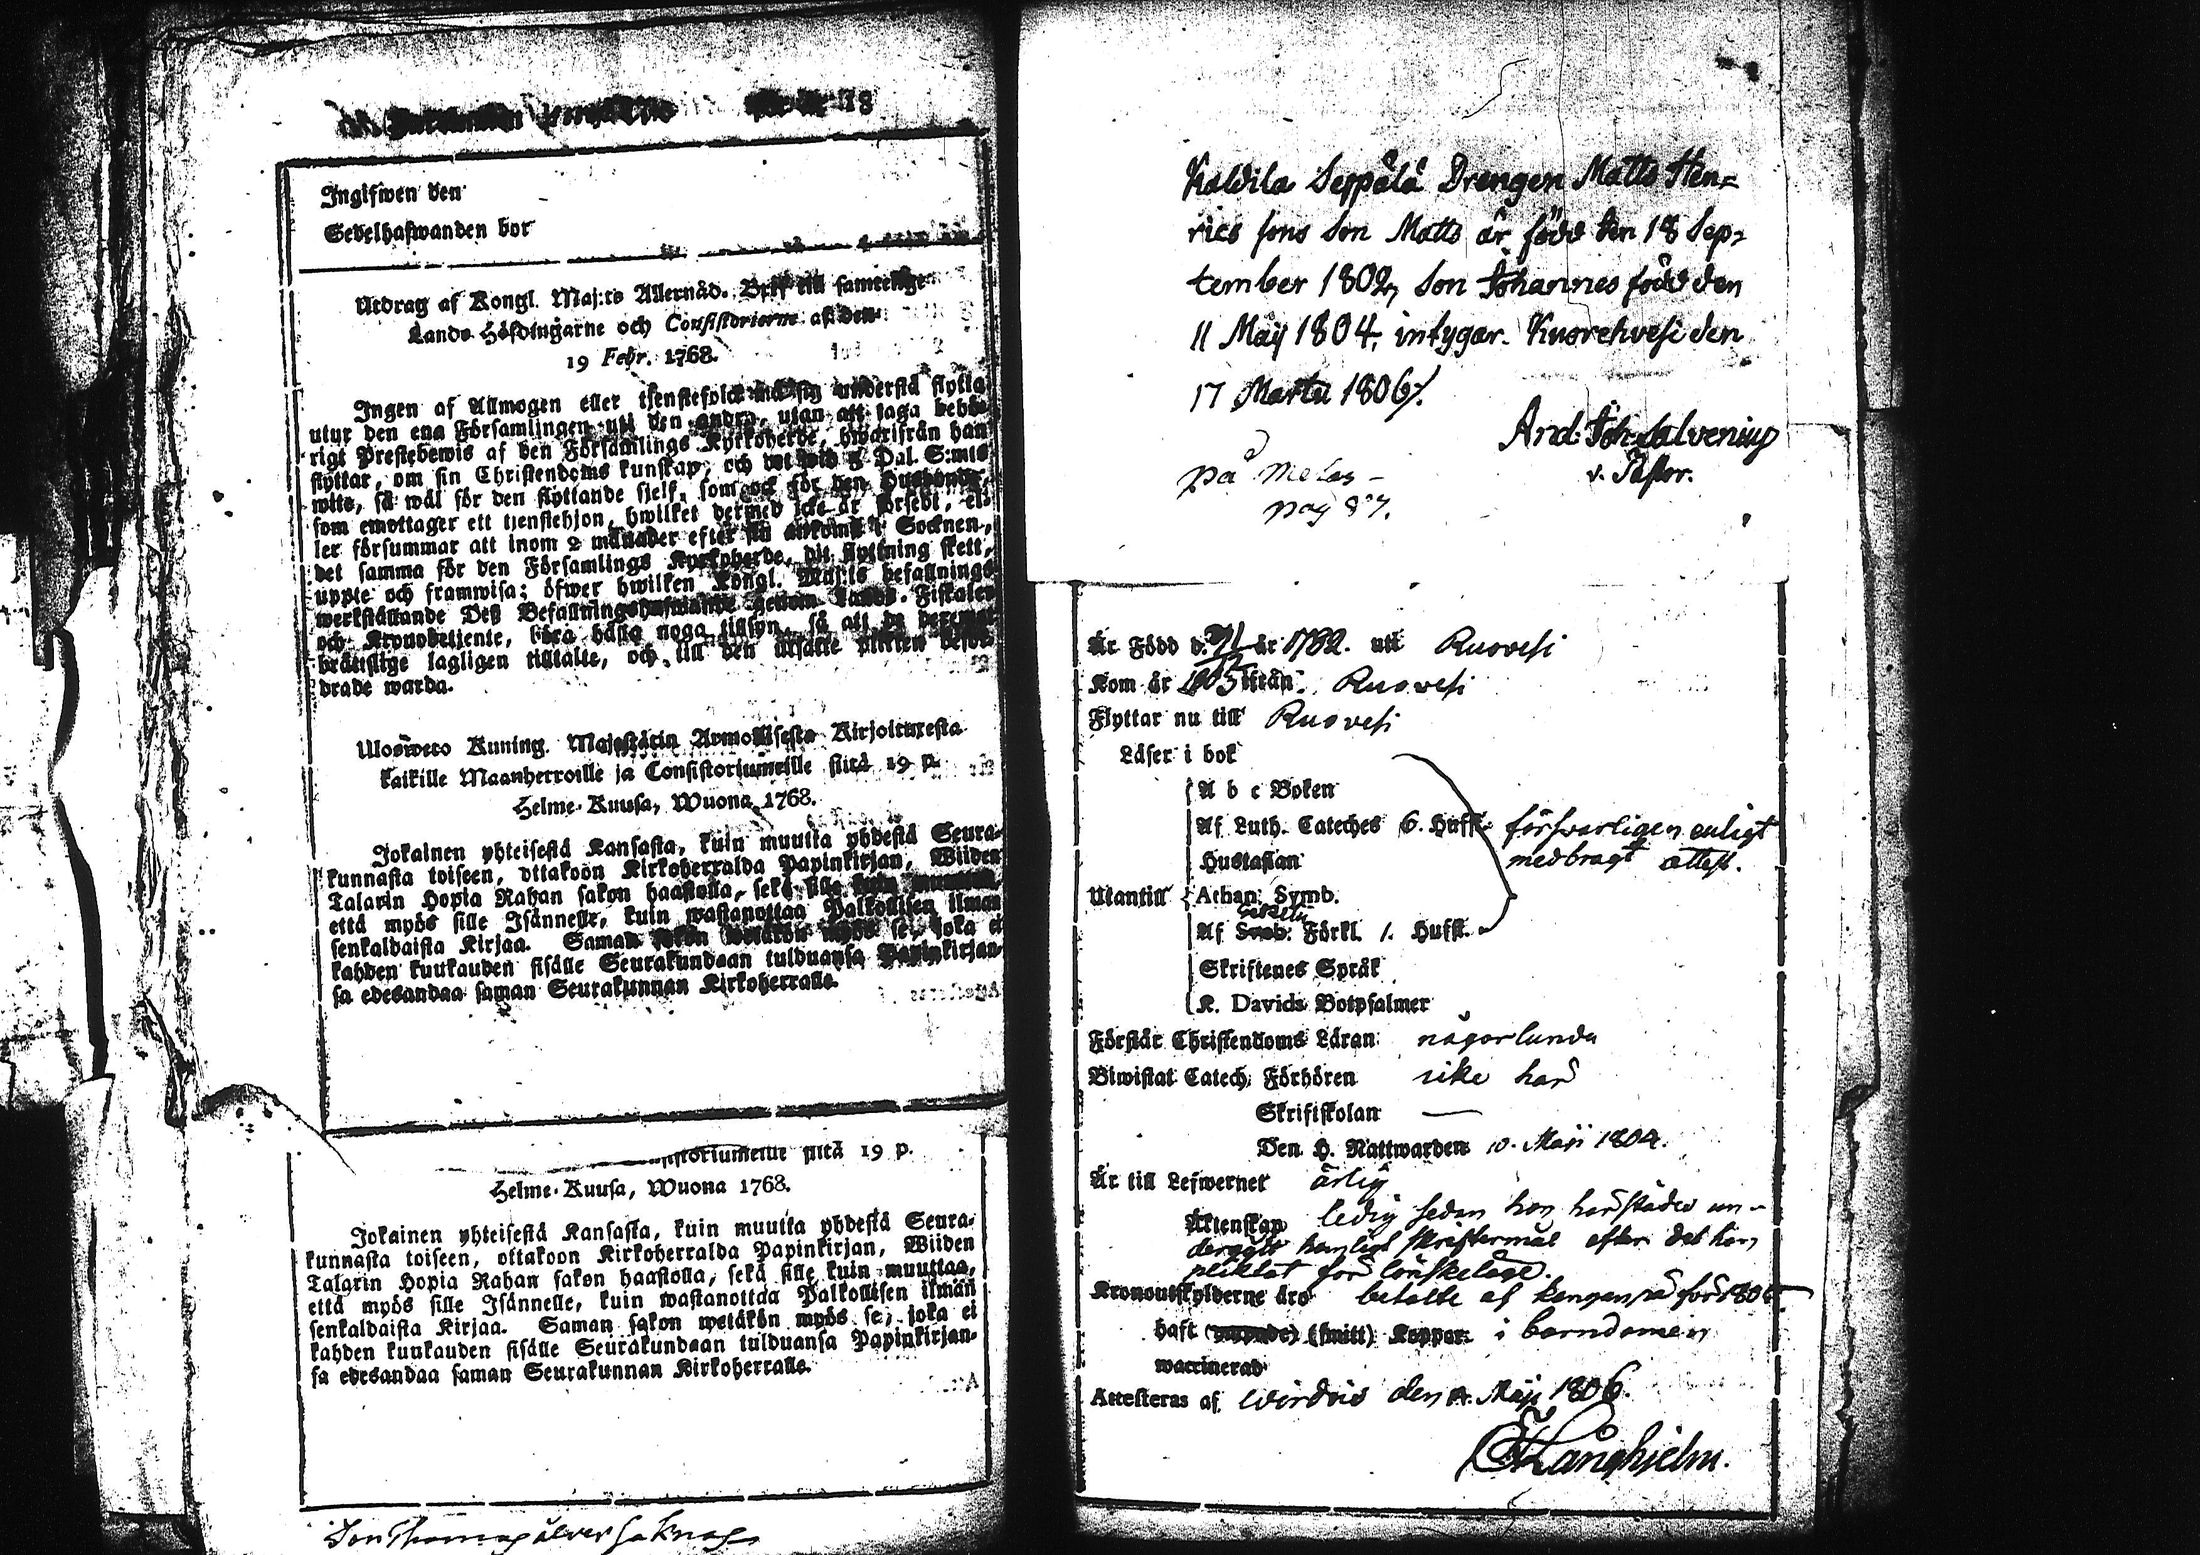 18
Ingifwen den
Sedelhafwanden bor
Utdrag af Kongl. Maj:ts Allernåd. Bref till samtelige
Lands-Höfdingarne och Consistorierne af den
19 Febr. 1768.
Ingen af Allmogen eller tjenstefolck må sig understå flytta
utur den ena Församlingen uti den andra, utan att taga behö-
rigt Prestebewis af den Församlings Kyrkoherde, hwarifrån han
flyttar, om sin Christendoms kunskap; och det wid 5 Dal. S:mts
wite, så wäl för den flyttande sjelf, som ock för den Husbonde,
som emottager ett tjenstehjon, hwilket dermed icke är försedt, el-
ler försummar att inom 2 månader efter sin ankomst i Socknen,
det samma för den Församlings Kyrkoherde, dit flyttning skett,
uppte och framwisa; öfwer hwilken Kongl. Maj:ts befallnings
werkställande Deß Befallningshafwande genom Lands-Fiskaler
och Kronobetjente, böra hafwa noga tillsyn, så att de
bråttslige lagligen tilltalte, och till den utsatte plikten befor-
drade warda.
Ulosweto Kuning. Majestätin Armollisesta Kirjoituxesta
kaikille Maanherroille ja Consistoriumeille siitä 19 p.
Helme-Kuusa, Wuona 1768.
Jokainen yhteisestä Kansasta, kuin muutta yhdestä Seura-
kunnasta toiseen, ottakoon Kirkoherralda Papinkirjan, Wiiden
Talarin Hopia Rahan sakon haastolla, sekä sille kuin muuttaa,
että myös sille Isännelle, kuin wastanottaa Palkollisen ilman
senkaldaista Kirjaa. Saman sakon wetäkön myös se, joka ei
kahden kuukauden sisälle Seurakundaan tulduansa Papinkirjan-
sa edesandaa saman Seurakunnan Kirkoherralle.
siitä 19 p.
Helme-Kuusa, Wuona 1768.
Jokainen yhteisestä Kansasta, kuin muutta yhdestä Seura-
kunnasta toiseen, ottakoon Kirkoherralda Papinkirjan, Wiiden
Talarin Hopia Rahan sakon haastolla, sekä sille kuin muuttaa,
että myös sille Isännelle, kuin wastanottaa Palkollisen ilman
senkaldaista Kirjaa. Saman sakon wetäkön myös se, joka ei
kahden kuukauden sisälle Seurakundaan tulduansa Papinkirjan-
sa edesandaa saman Seurakunnan Kirkoherralle.
Kaldila Seppälä Drengen Matts Hen-
rics sons Son Matts är född den 18 Sep-
tember 1802, Son Johannes född den
11 Maij 1804, intygar. Kuorehvesi den
17 Martii 1806/.
And: Joh. Salvenius
v. Pastor.
på
pag 87.
År Född d. är 1782. uti Ruovesi
Kom är 1805 ifrån Ruovesi
Flyttar nu till Ruovesi
Läser i bok
A b c Boken
Af Luth. Cateches 6. Hufst. försvarligen enligt
Hustaflan medbragt attest.
Utantill Athan: Symb.
Af Förkl. 1. Hufst.
Skriftenes Språk
K. Davids Botpsalmer
Förstår Christendoms Läran någorlunda
Biwistat Catech. Förhören icke här
Skriftskolan —
Den H. Nattwarden 10. Maji 1804.
Är till Lefwernet ärlig
Äktenskap ledig sedan hon härstädes un-
dergått hemligt skriftermål efter det hon
pliktat för lönskeläge.
Kronoutskylderne äro betalte af
haft (smitt) Koppor i barndomen
waccinerad
Attesteras af Wirdois den Maji 1806.
Långhjelm.